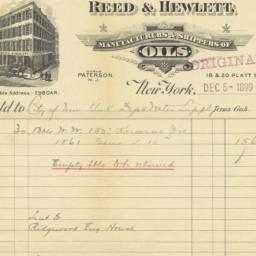 REED & HEWLETT,
MANUFACTURERS & SHIPPERS OF
OILS
ORIGINAL
WORKS
PATERSON,
N. J.
18 & 20 PLATT S
Cable Address - EBBOAR.
New York, DEC 5 - 1899
Sold to City of New York Dept Water Supply Terms Cash.
Bbls W. W. 150° Kerosene Oil
1861 Gals
Empty Bbls to be returned
Sent to
Ridgewood Eng House